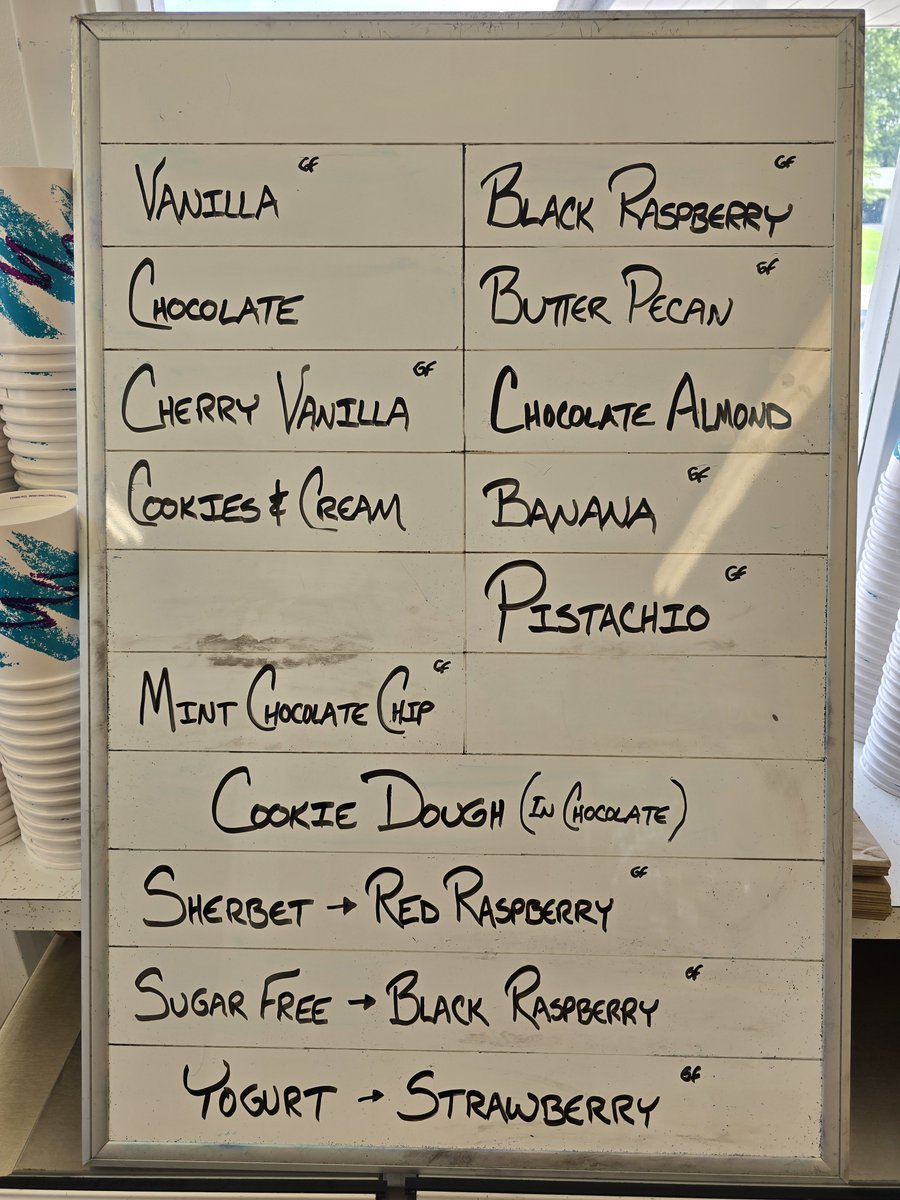 VANILLA GF
BLACK RASPBERRY GF
CHOCOLATE
BUTTER PECAN GF
CHERRY VANILLA GF
CHOCOLATE ALMOND
COOKIES & CREAM
BANANA GF
PISTACHIO GF
MINT CHOCOLATE CHIP GF
COOKIE DOUGH (IN CHOCOLATE)
SHERBET → RED RASPBERRY GF
SUGAR FREE → BLACK RASPBERRY GF
YOGURT → STRAWBERRY GF